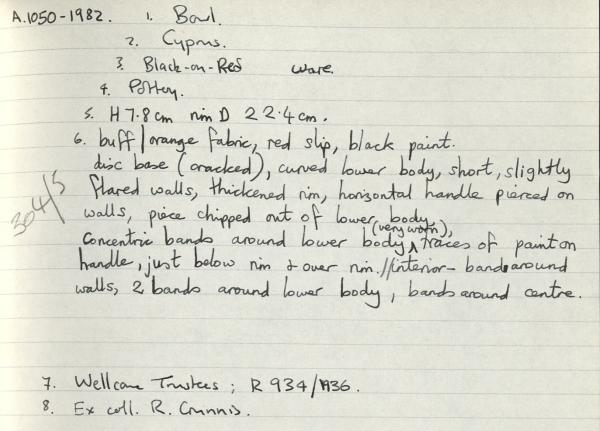 A.1050-1982. 1. Bowl.
2. Cyprus.
3. Black-on-Red ware.
4. Pottery.
5. H 7.8cm rim D 22.4cm.
6. buff/orange fabric, red slip, black paint.
disc base (cracked), curved lower body, short, slightly
flared walls, thickened rim, horizontal handle pierced on
walls, piece chipped out of lower body.
concentric bands around lower body ^ (very worn), traces of paint on
handle, just below rim & over rim.//interior - bands around
walls, 2 bands around lower body, bands around centre.
304/5
7. Wellcome Trustees; R 934/1936.
8. Ex coll. R. Gunnis.